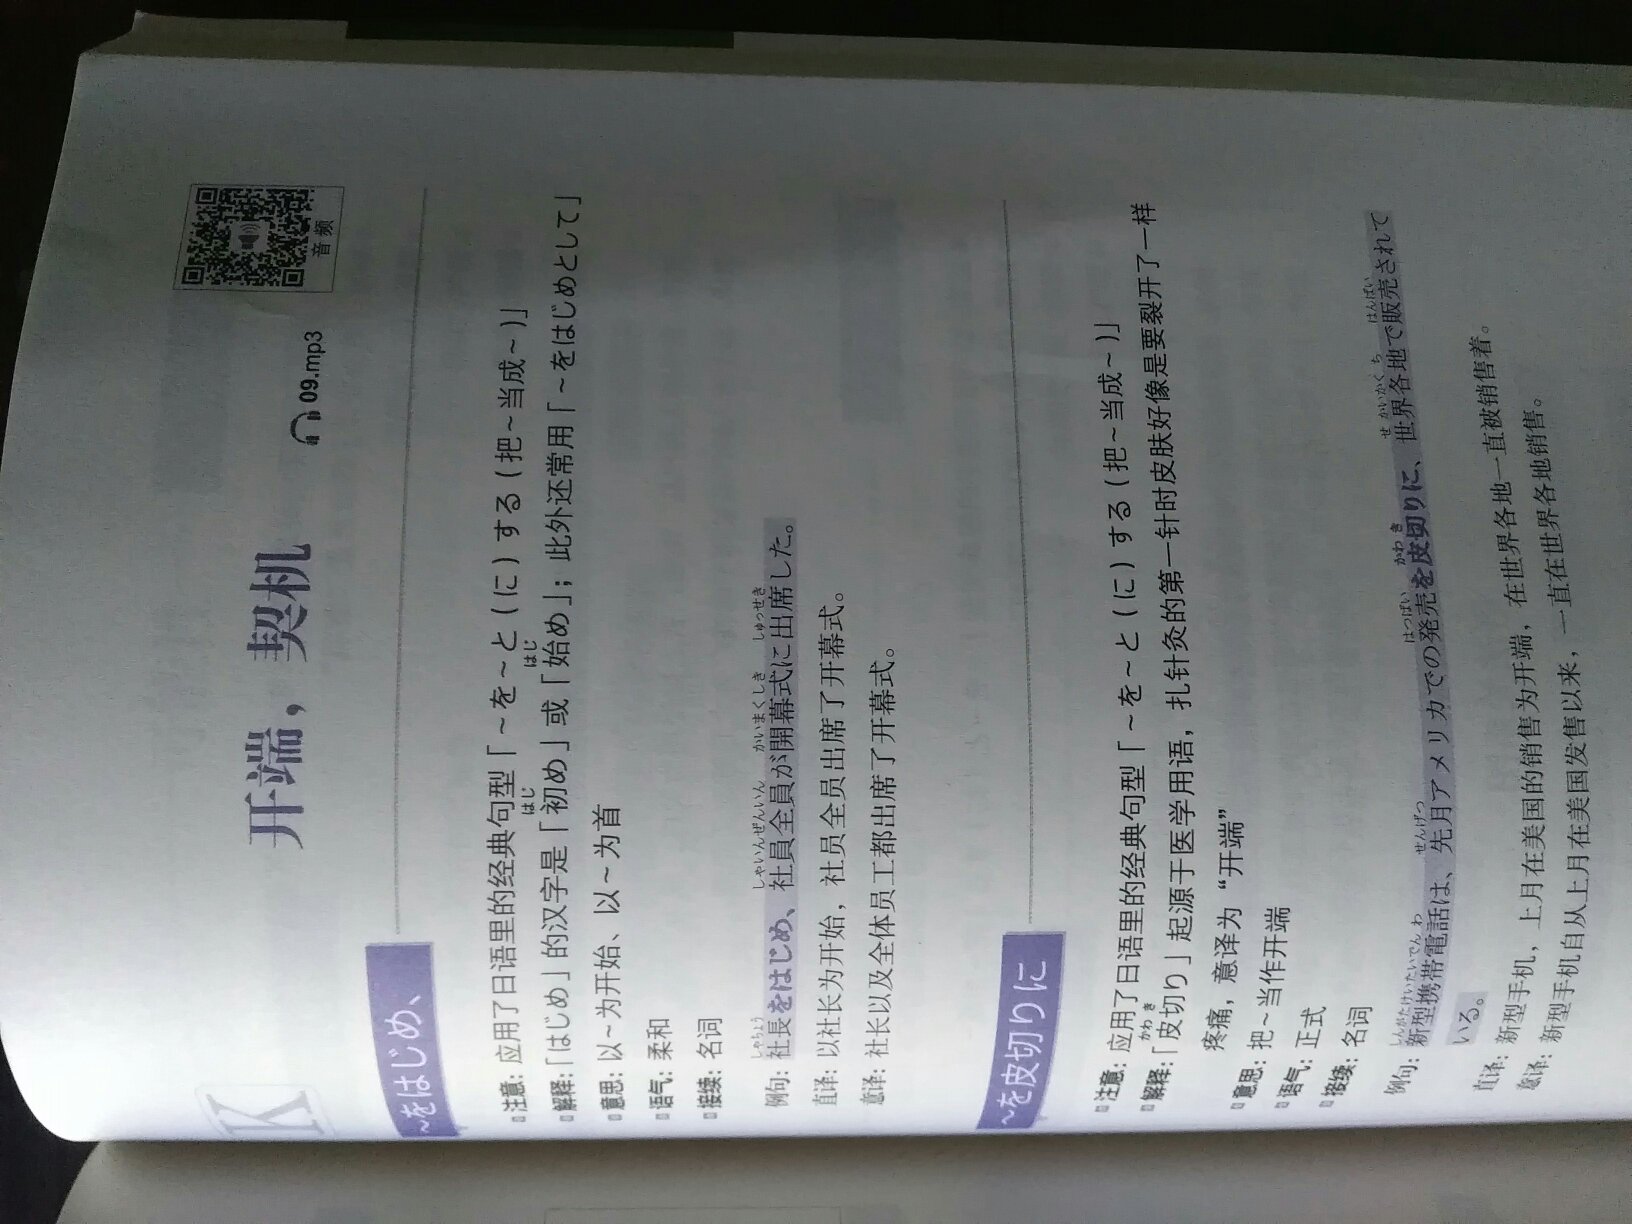 K
开端，契机
09.mp3
音频
~をはじめ、
注意：应用了日语里的经典句型「~を~と(に)する(把~当成~)」
はじ はじ
解释：「はじめ」的汉字是「初め」或「始め」；此外还常用「~をはじめとして」
意思：以~为开始、以~为首
语气：柔和
接续：名词
しゃちょう しゃいんぜんいん かいまくしき しゅっせき
例句：社長をはじめ、社員全員が開幕式に出席した。
直译：以社长为开始，社员全员出席了开幕式。
意译：社长以及全体员工都出席了开幕式。
~を皮切りに
注意：应用了日语里的经典句型「~を~と(に)する(把~当成~)」
かわき
解释：「皮切り」起源于医学用语，扎针灸的第一针时皮肤好像是要裂开了一样
疼痛，意译为“开端”
意思：把~当作开端
语气：正式
接续：名词
しんがたけいたいでんわ せんげつ はつばい かわき せかいかくち はんばい
例句：新型携帯電話は、先月アメリカでの発売を皮切りに、世界各地で販売されて
いる。
直译：新型手机，上月在美国的销售为开端，在世界各地一直被销售着。
意译：新型手机自从上月在美国发售以来，一直在世界各地销售。